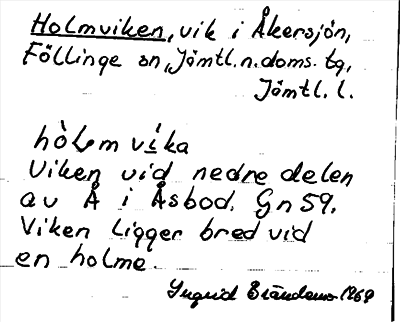 Holmviken, vik i Åkersjön,
Föllinge sn, Jämtl. n. doms. tg,
Jämtl. l.
hòlm vı̀ka
Viken vid nedre delen
av Å i Åsbod. Gn 59.
Viken ligger bred vid
en holme.
Ingrid 1969